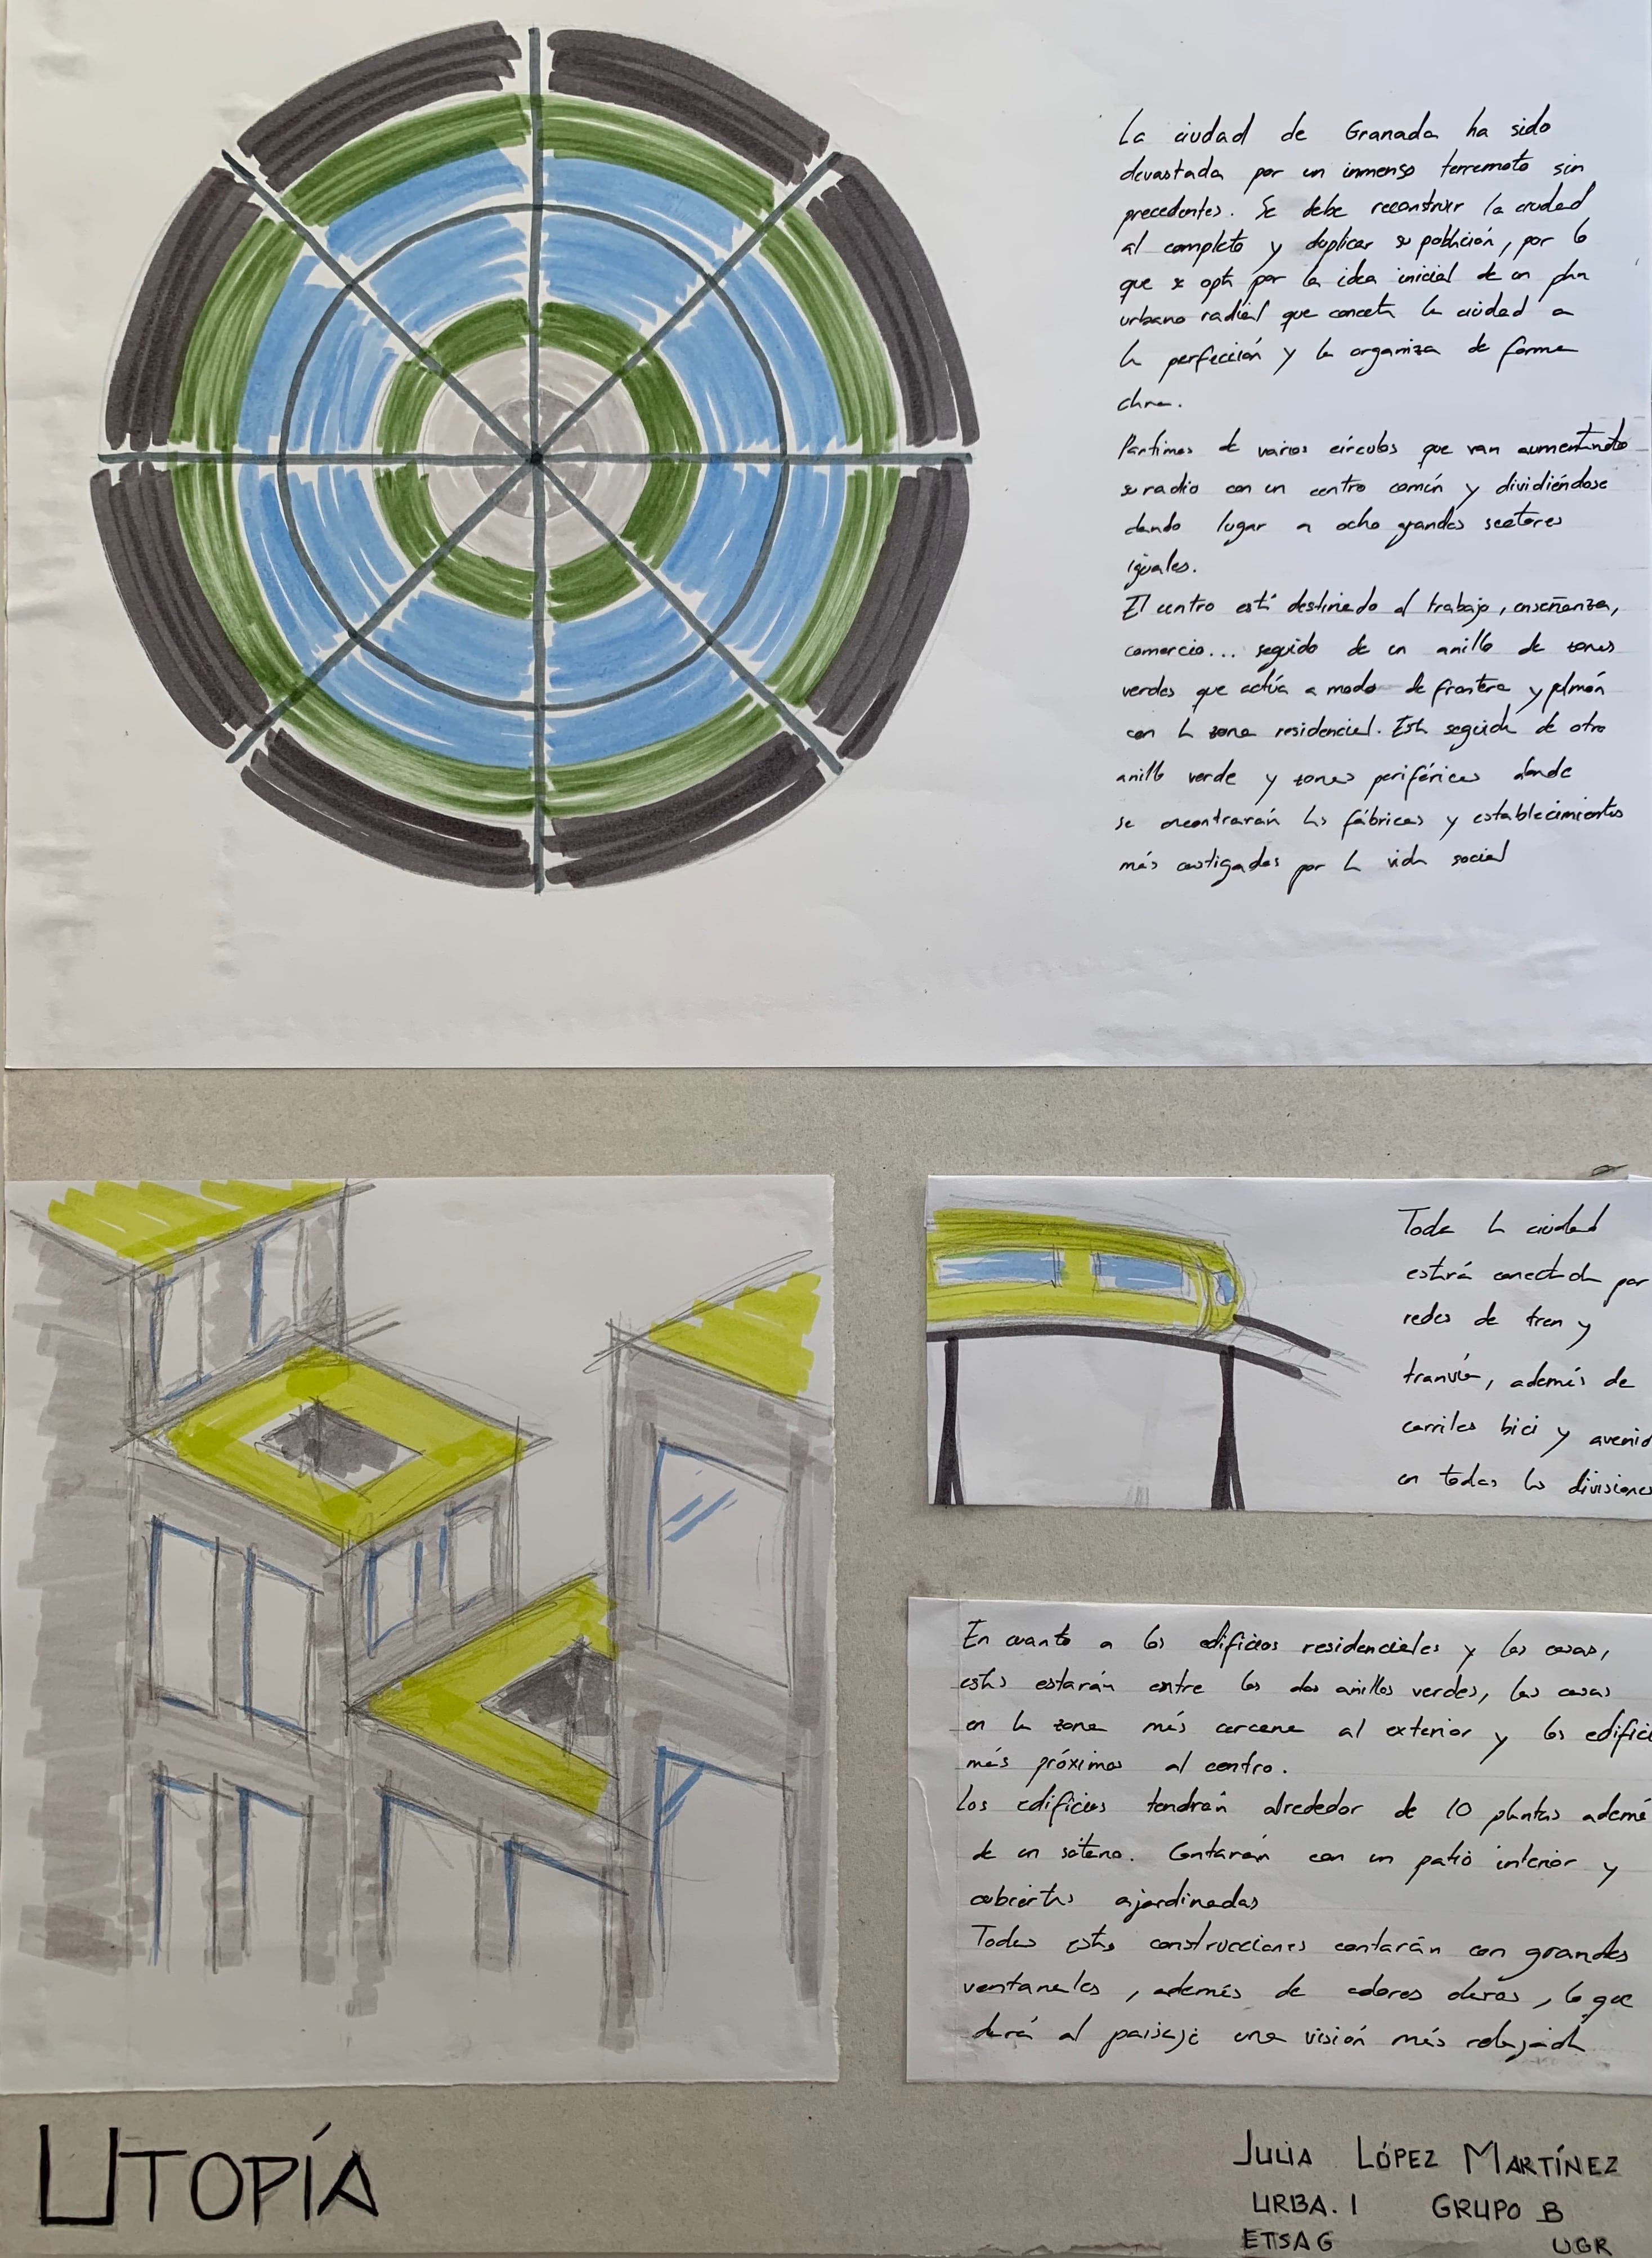 La ciudad de Granada ha sido
devastada por un inmenso terremoto sin
precedentes. Se debe reconstruir la ciudad
al completo y duplicar su población, por lo
que se opta por la idea inicial de un plan
urbano radial que conecta la ciudad a
la perfección y la organiza de forma
clara.
Partimos de varios círculos que van aumentando
su radio con un centro común y dividiéndose
dando lugar a ocho grandes sectores
iguales.
El centro está destinado al trabajo, enseñanza,
comercio... seguido de un anillo de zonas
verdes que actúa a modo de frontera y pulmón
con la zona residencial. Esta seguida de otro
anillo verde y zonas periféricas donde
se encontrarán las fábricas y establecimientos
más castigados por la vida social
Toda la ciudad
estará conectada por
redes de tren y
tranvía, además de
carriles bici y avenid
en todas las divisiones
En cuanto a los edificios residenciales y las casas,
estos estarán entre los dos anillos verdes, las casas
en la zona más cercana al exterior y los edifici
más próximos al centro.
Los edificios tendrán alrededor de 10 plantas ademá
de un sótano. Contarán con un patio interior y
cubiertas ajardinadas
Todas estas construcciones contarán con grandes
ventanales, además de colores claros, lo que
dará al paisaje una visión más relajada
UTOPÍA
JULIA LÓPEZ MARTÍNEZ
URBA. I GRUPO B
ETSAG UGR